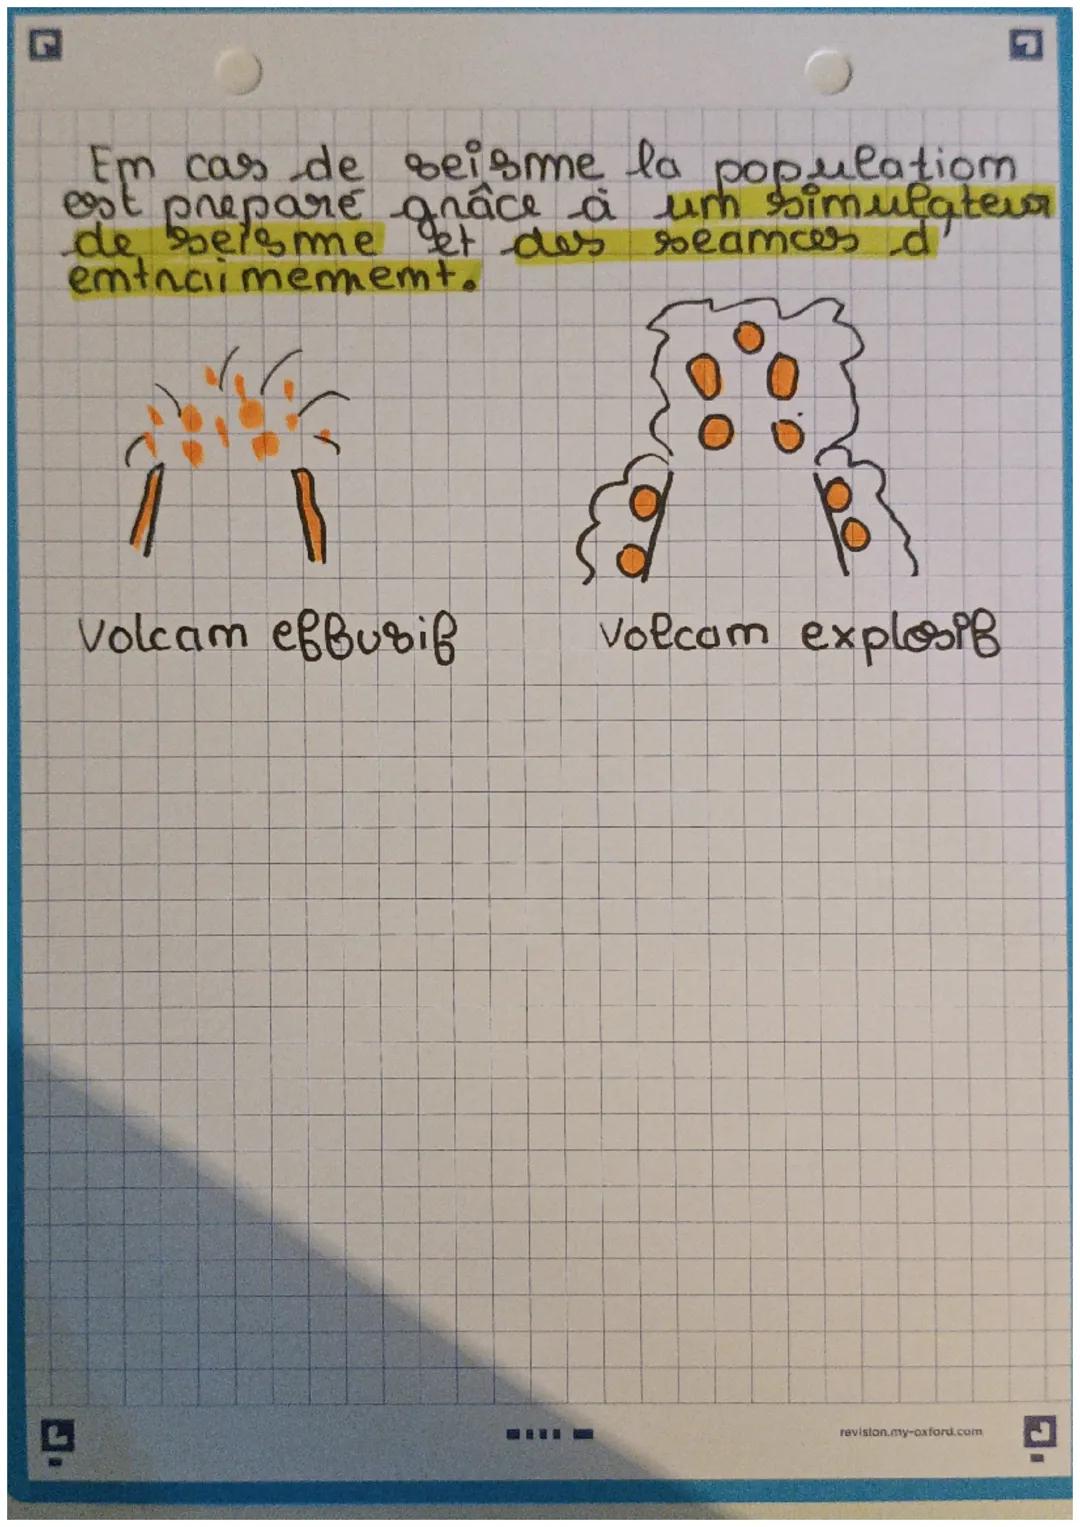 En cas de seisme la population
est preparé grâce à un simulateur
de seisme et des seances d'
entrainement.
Volcan effusif
Volcan explosif
revision.my-oxford.com